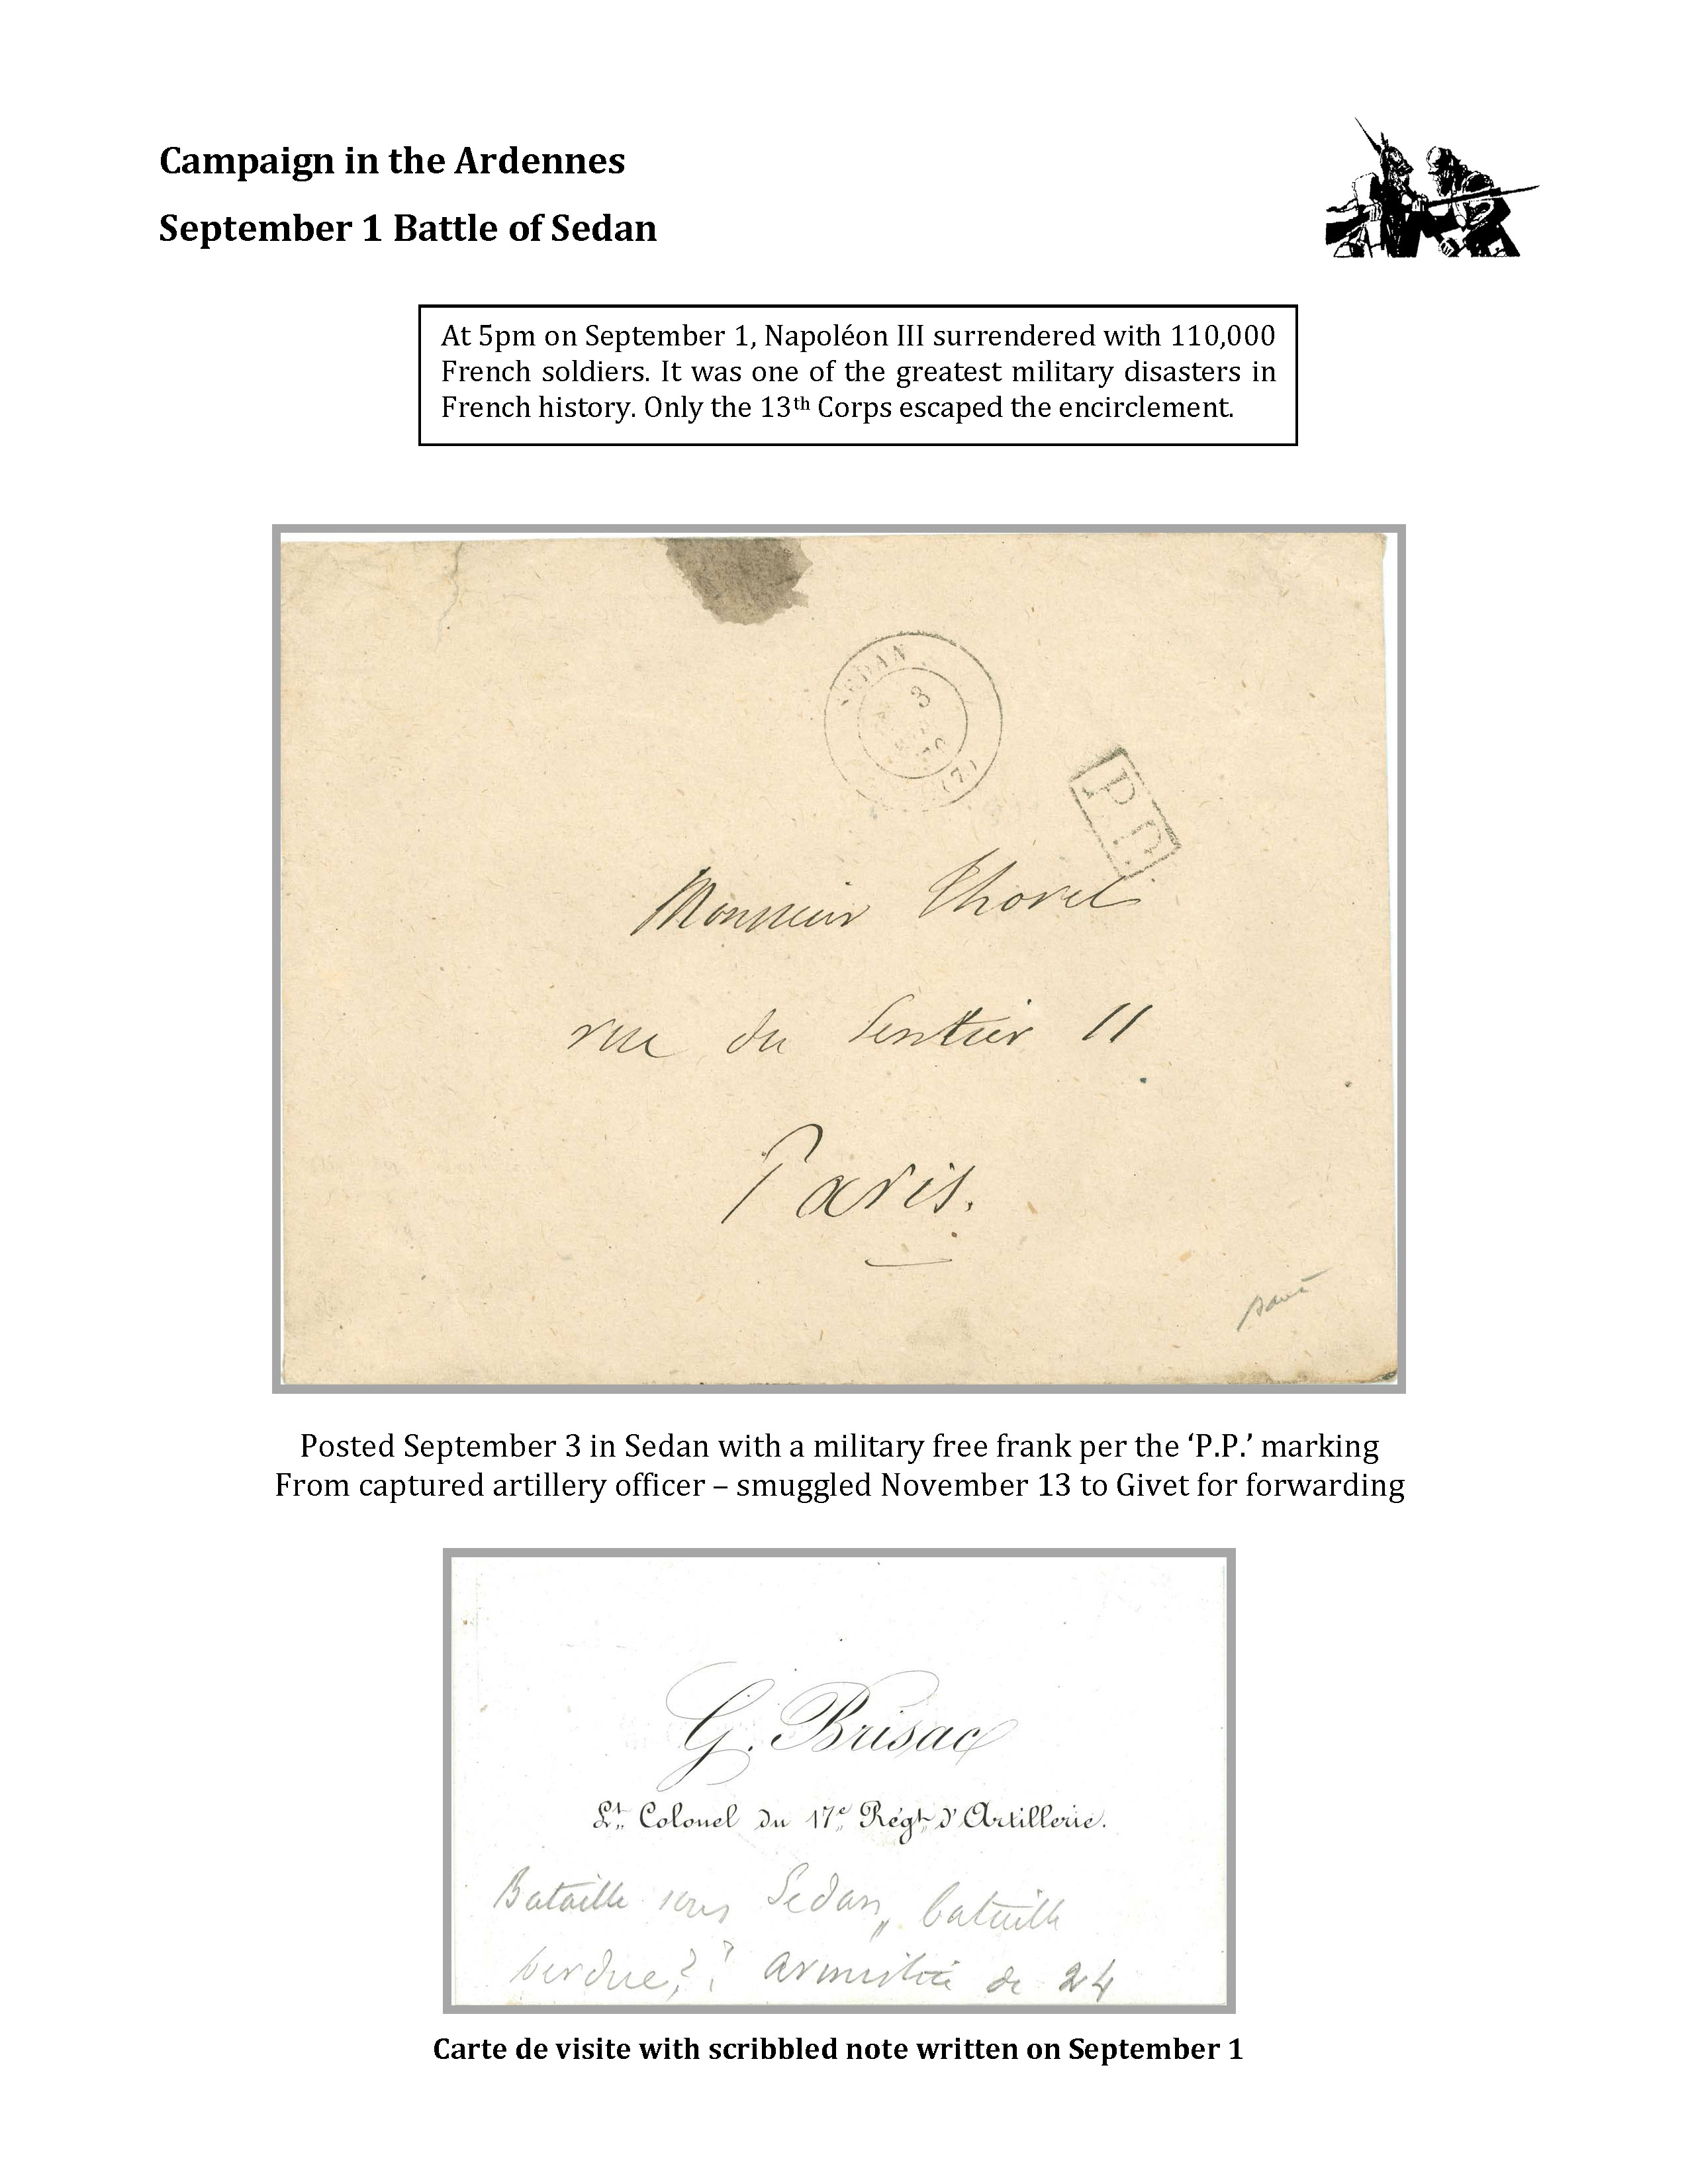 Campaign in the Ardennes
September 1 Battle of Sedan
At 5pm on September 1, Napoléon III surrendered with 110,000
French soldiers. It was one of the greatest military disasters in
French history. Only the 13th Corps escaped the encirclement.
SEDAN
3
(7)
P.P.
Monsieur Thorel
rue du Sentier 11
Paris.
Posted September 3 in Sedan with a military free frank per the ‘P.P.’ marking
From captured artillery officer – smuggled November 13 to Givet for forwarding
G. Brisac
Lt. Colonel du 17e Régt d'Artillerie.
Bataille sous Sedan, bataille
perdue?? armistice de 24
Carte de visite with scribbled note written on September 1